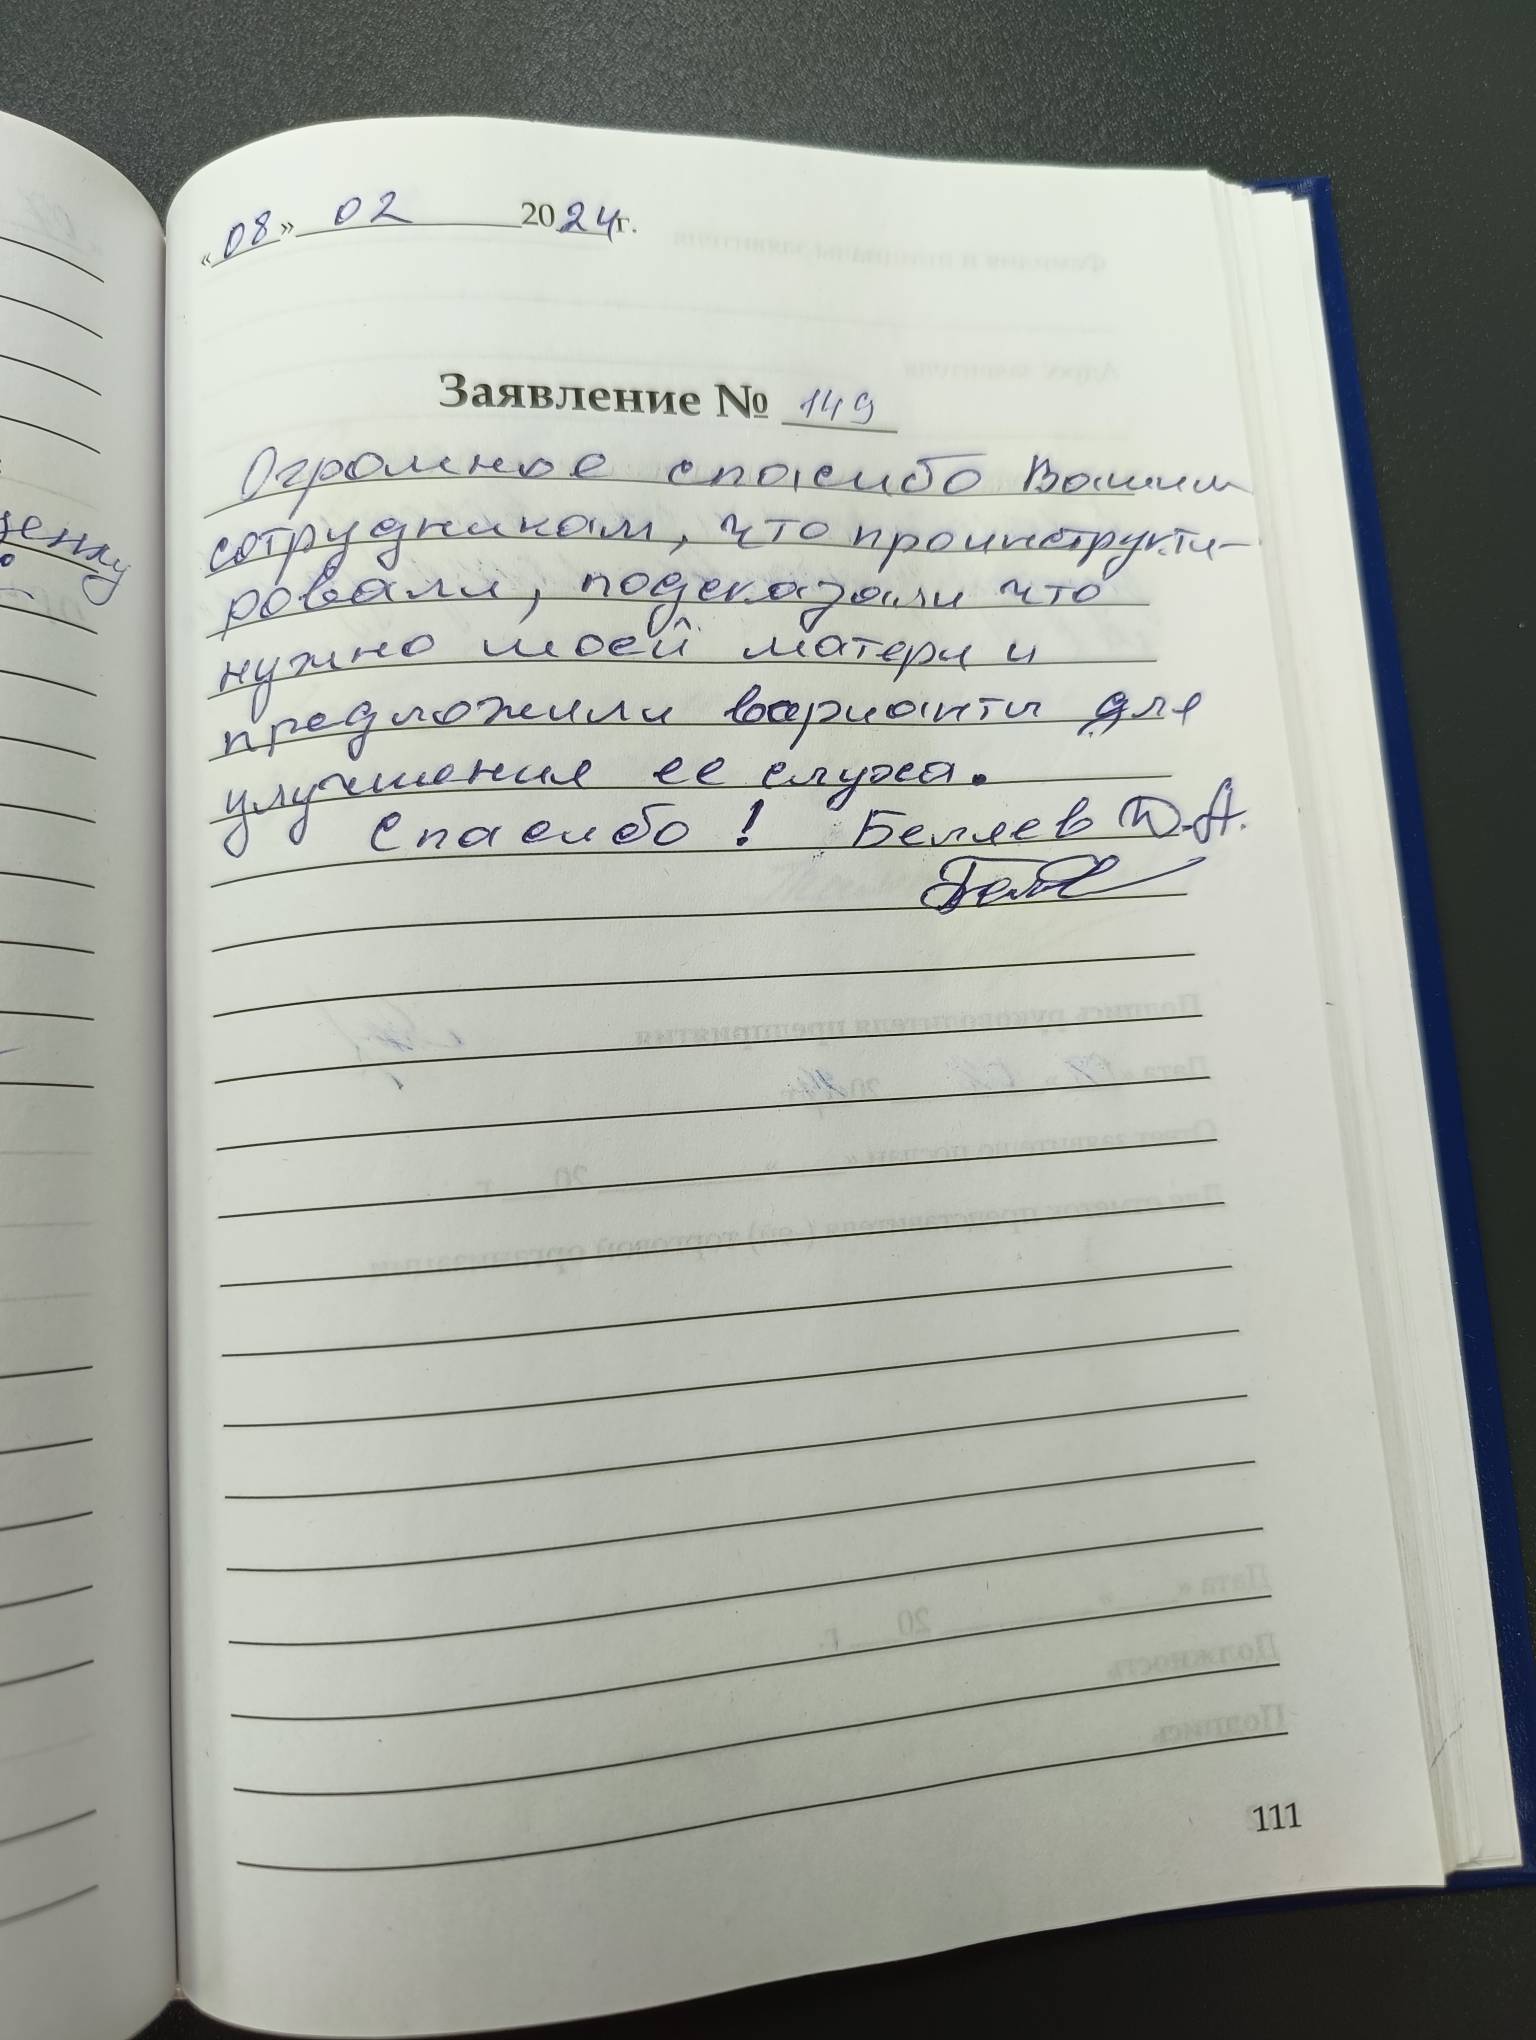 «08» 02 2024г.
Заявление № 149
Огромное спасибо Вашим
сотрудникам, что проинструкти-
ровали, подсказали что
нужно моей матери и
предложили варианты для
улучшения ее слуха.
Спасибо! Беляев Д.А.
111